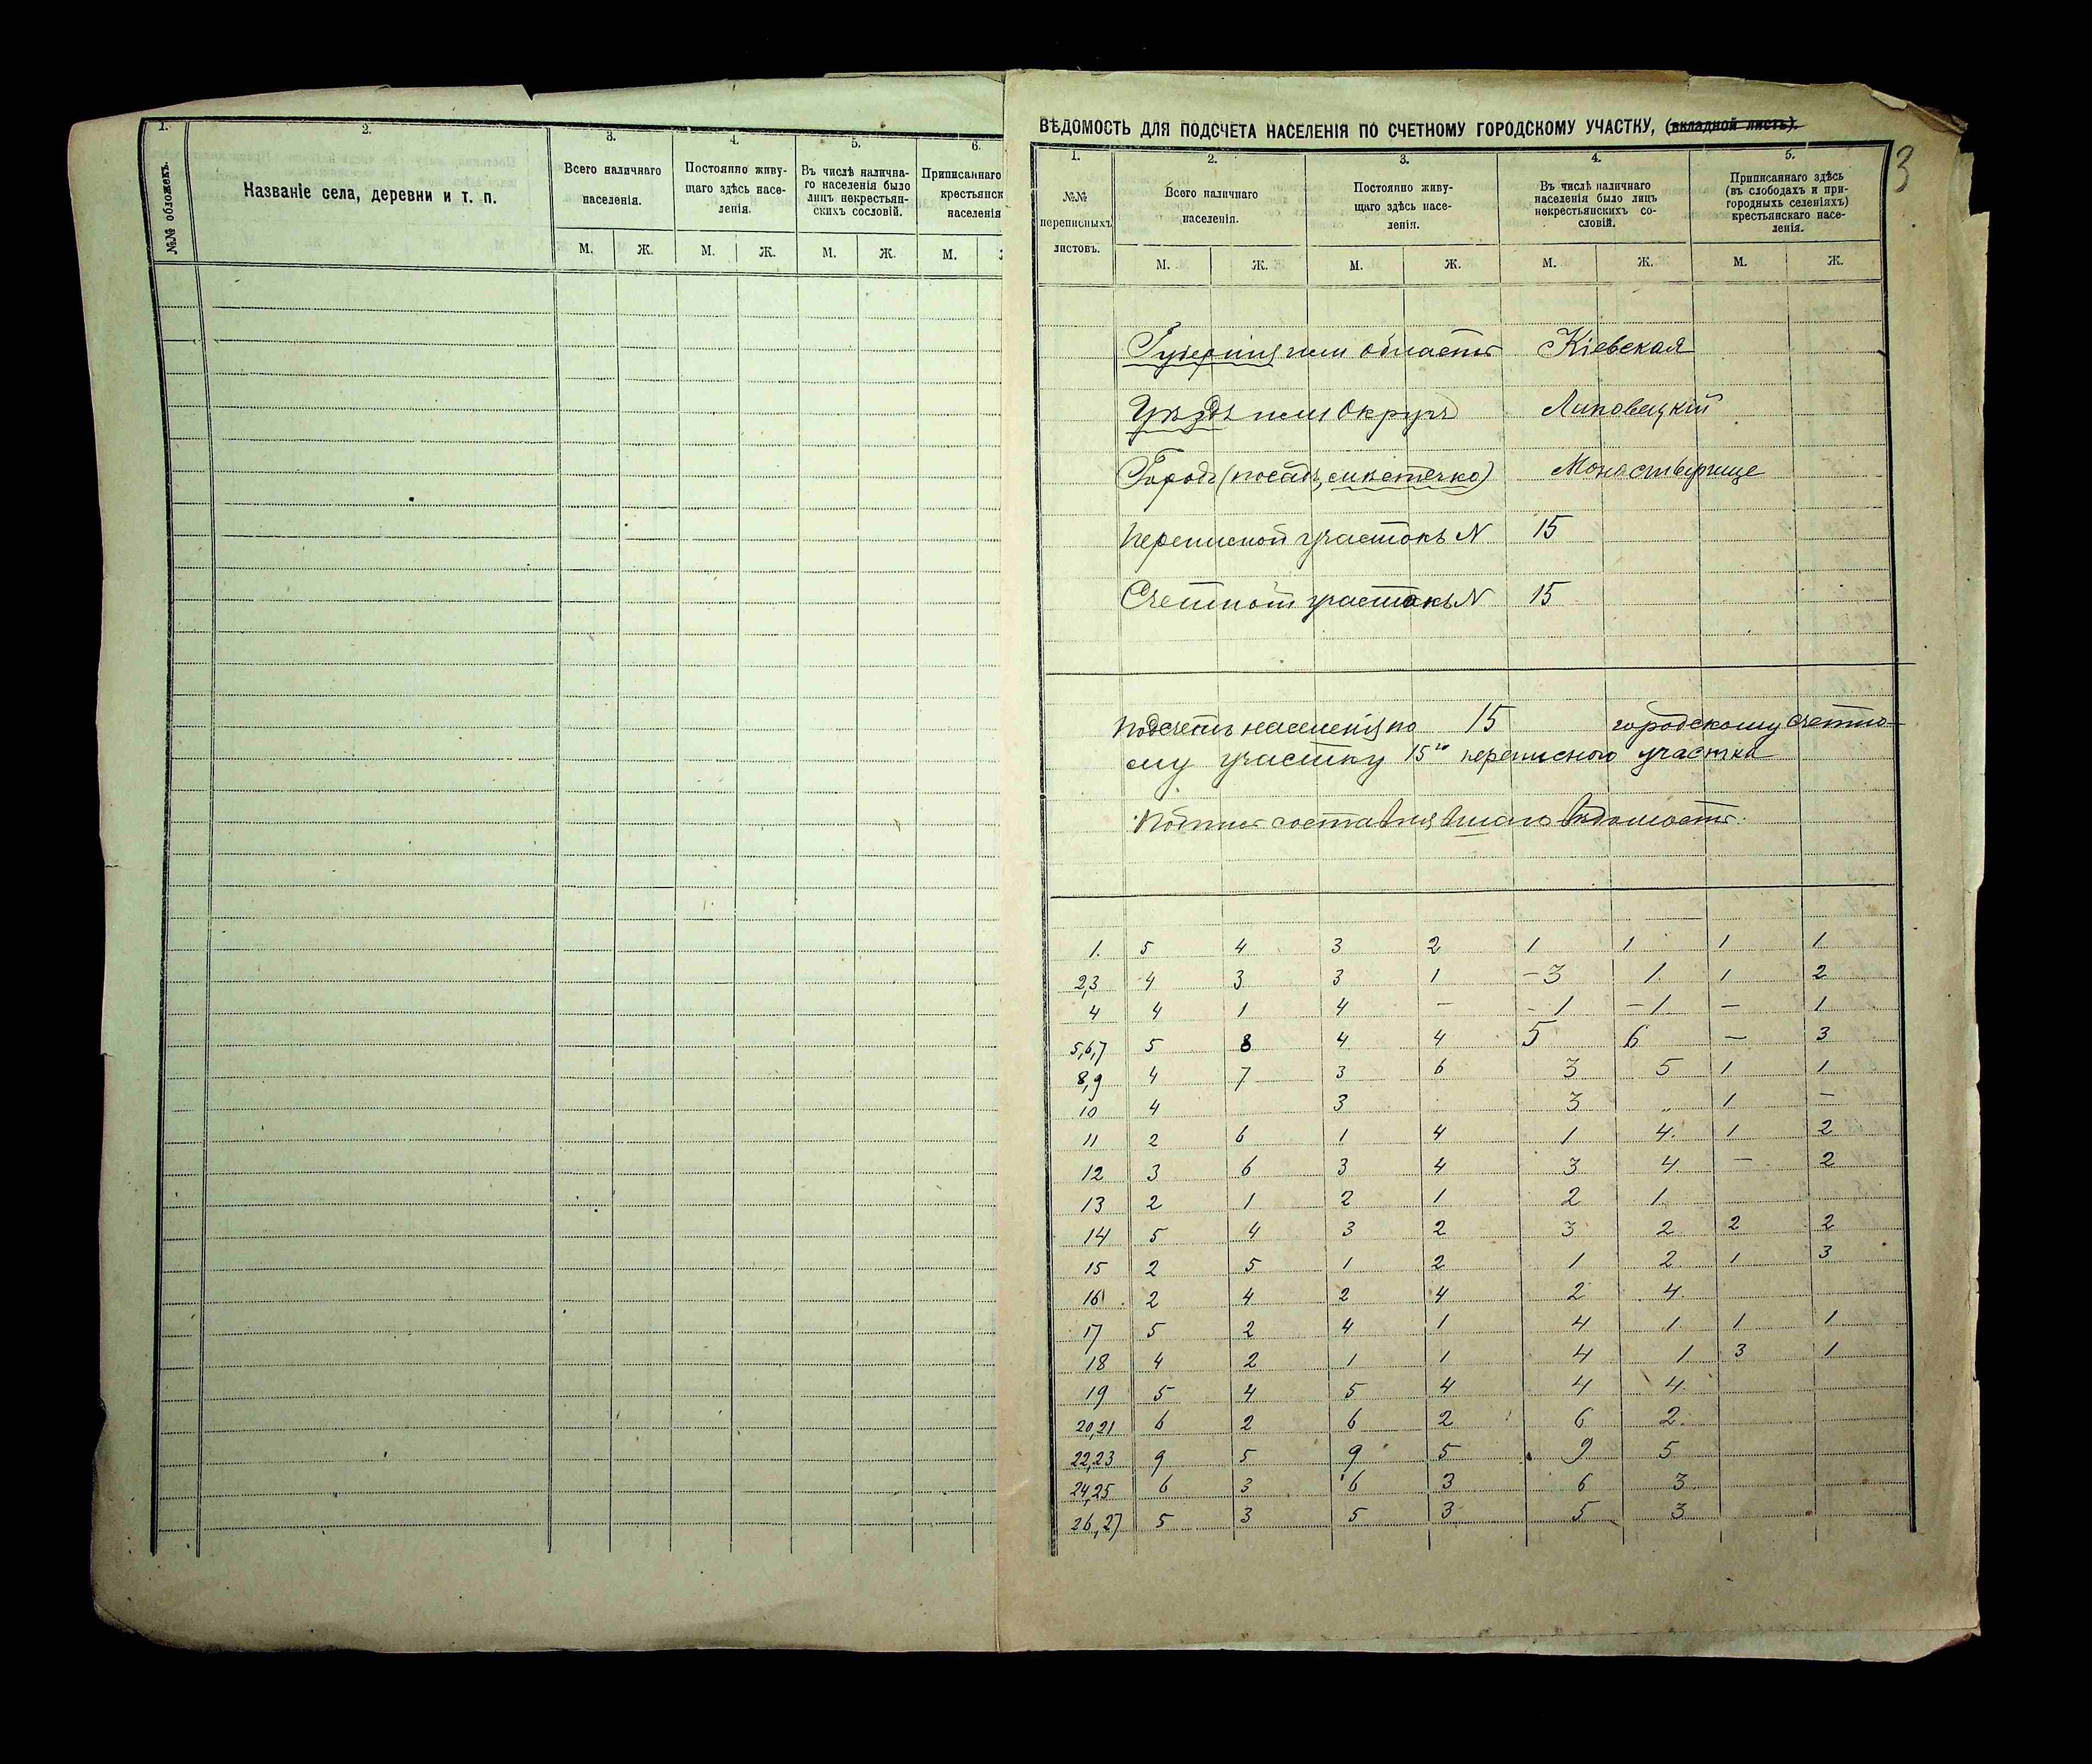 1.
2.
3.
4.
5.
6.
№№ обложекъ.
Названіе села, деревни и т. п.
Всего наличнаго
населенія.
Постоянно живу-
щаго здѣсь насе-
ленія.
Въ числѣ налична-
го населенія было
лицъ некрестьян-
скихъ сословій.
Приписаннаго
крестьянск
населенія
М. Ж. М. Ж. М. Ж. М.
ВѢДОМОСТЬ ДЛЯ ПОДСЧЕТА НАСЕЛЕНІЯ ПО СЧЕТНОМУ ГОРОДСКОМУ УЧАСТКУ, (вкладной листъ).
3
1.
2.
3.
4.
5.
№№
переписныхъ
листовъ.
Всего наличнаго
населенія.
Постоянно живу-
щаго здѣсь насе-
ленія.
Въ числѣ наличнаго
населенія было лицъ
некрестьянскихъ со-
словій.
Приписаннаго здѣсь
(въ слободахъ и при-
городныхъ селеніяхъ)
крестьянскаго насе-
ленія.
М. Ж. М. Ж. М. Ж. М. Ж.
Губернія или область Кіевская
Уѣздъ или Округъ Липовецкій
Городъ (посадъ, мѣстечко) Монастырище
Переписной участокъ N 15
Счетной участокъ N 15
Подсчетъ населенія по 15 городскому счетно-
му участку 15го переписного участка
Подпись составлявшаго вѣдомость.
1. 5 4 3 2 1 1 1 1
2,3 4 3 3 1 - 3 1. 1 2
4 4 1 4 - - 1 - 1. - 1
5,6,7 5 8 4 4 5 6 - 3
8,9 4 7 3 6 3 5 1 1
10 4 3 3 „ 1 -
11 2 6 1 4 1 4. 1 2
12 3 6 3 4 3 4. - 2
13 2 1 2 1 2 1.
14 5 4 3 2 3 2 2 2
15 2 5 1 2 1 2 1 3
16 2 4 2 4 2 4.
17 5 2 4 1 4 1. 1 1
18 4 2 1 1 4 1 3 1
19 5 4 5 4 4 4.
20,21 6 2 6 2 6 2.
22,23 9 5 9 5 9 5
24,25 6 3 6 3 6 3
26,27 5 3 5 3 5 3